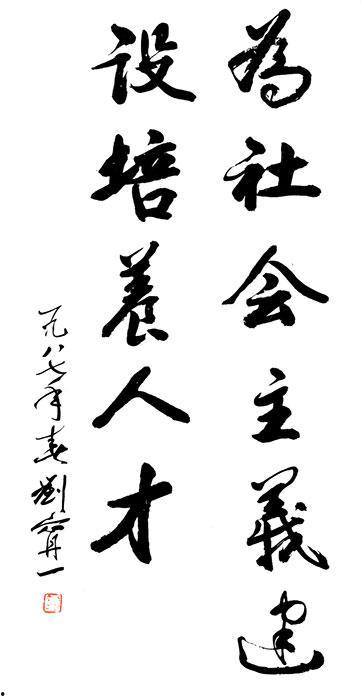 為社会主義建
设培養人才
一九八七年春劉寧一